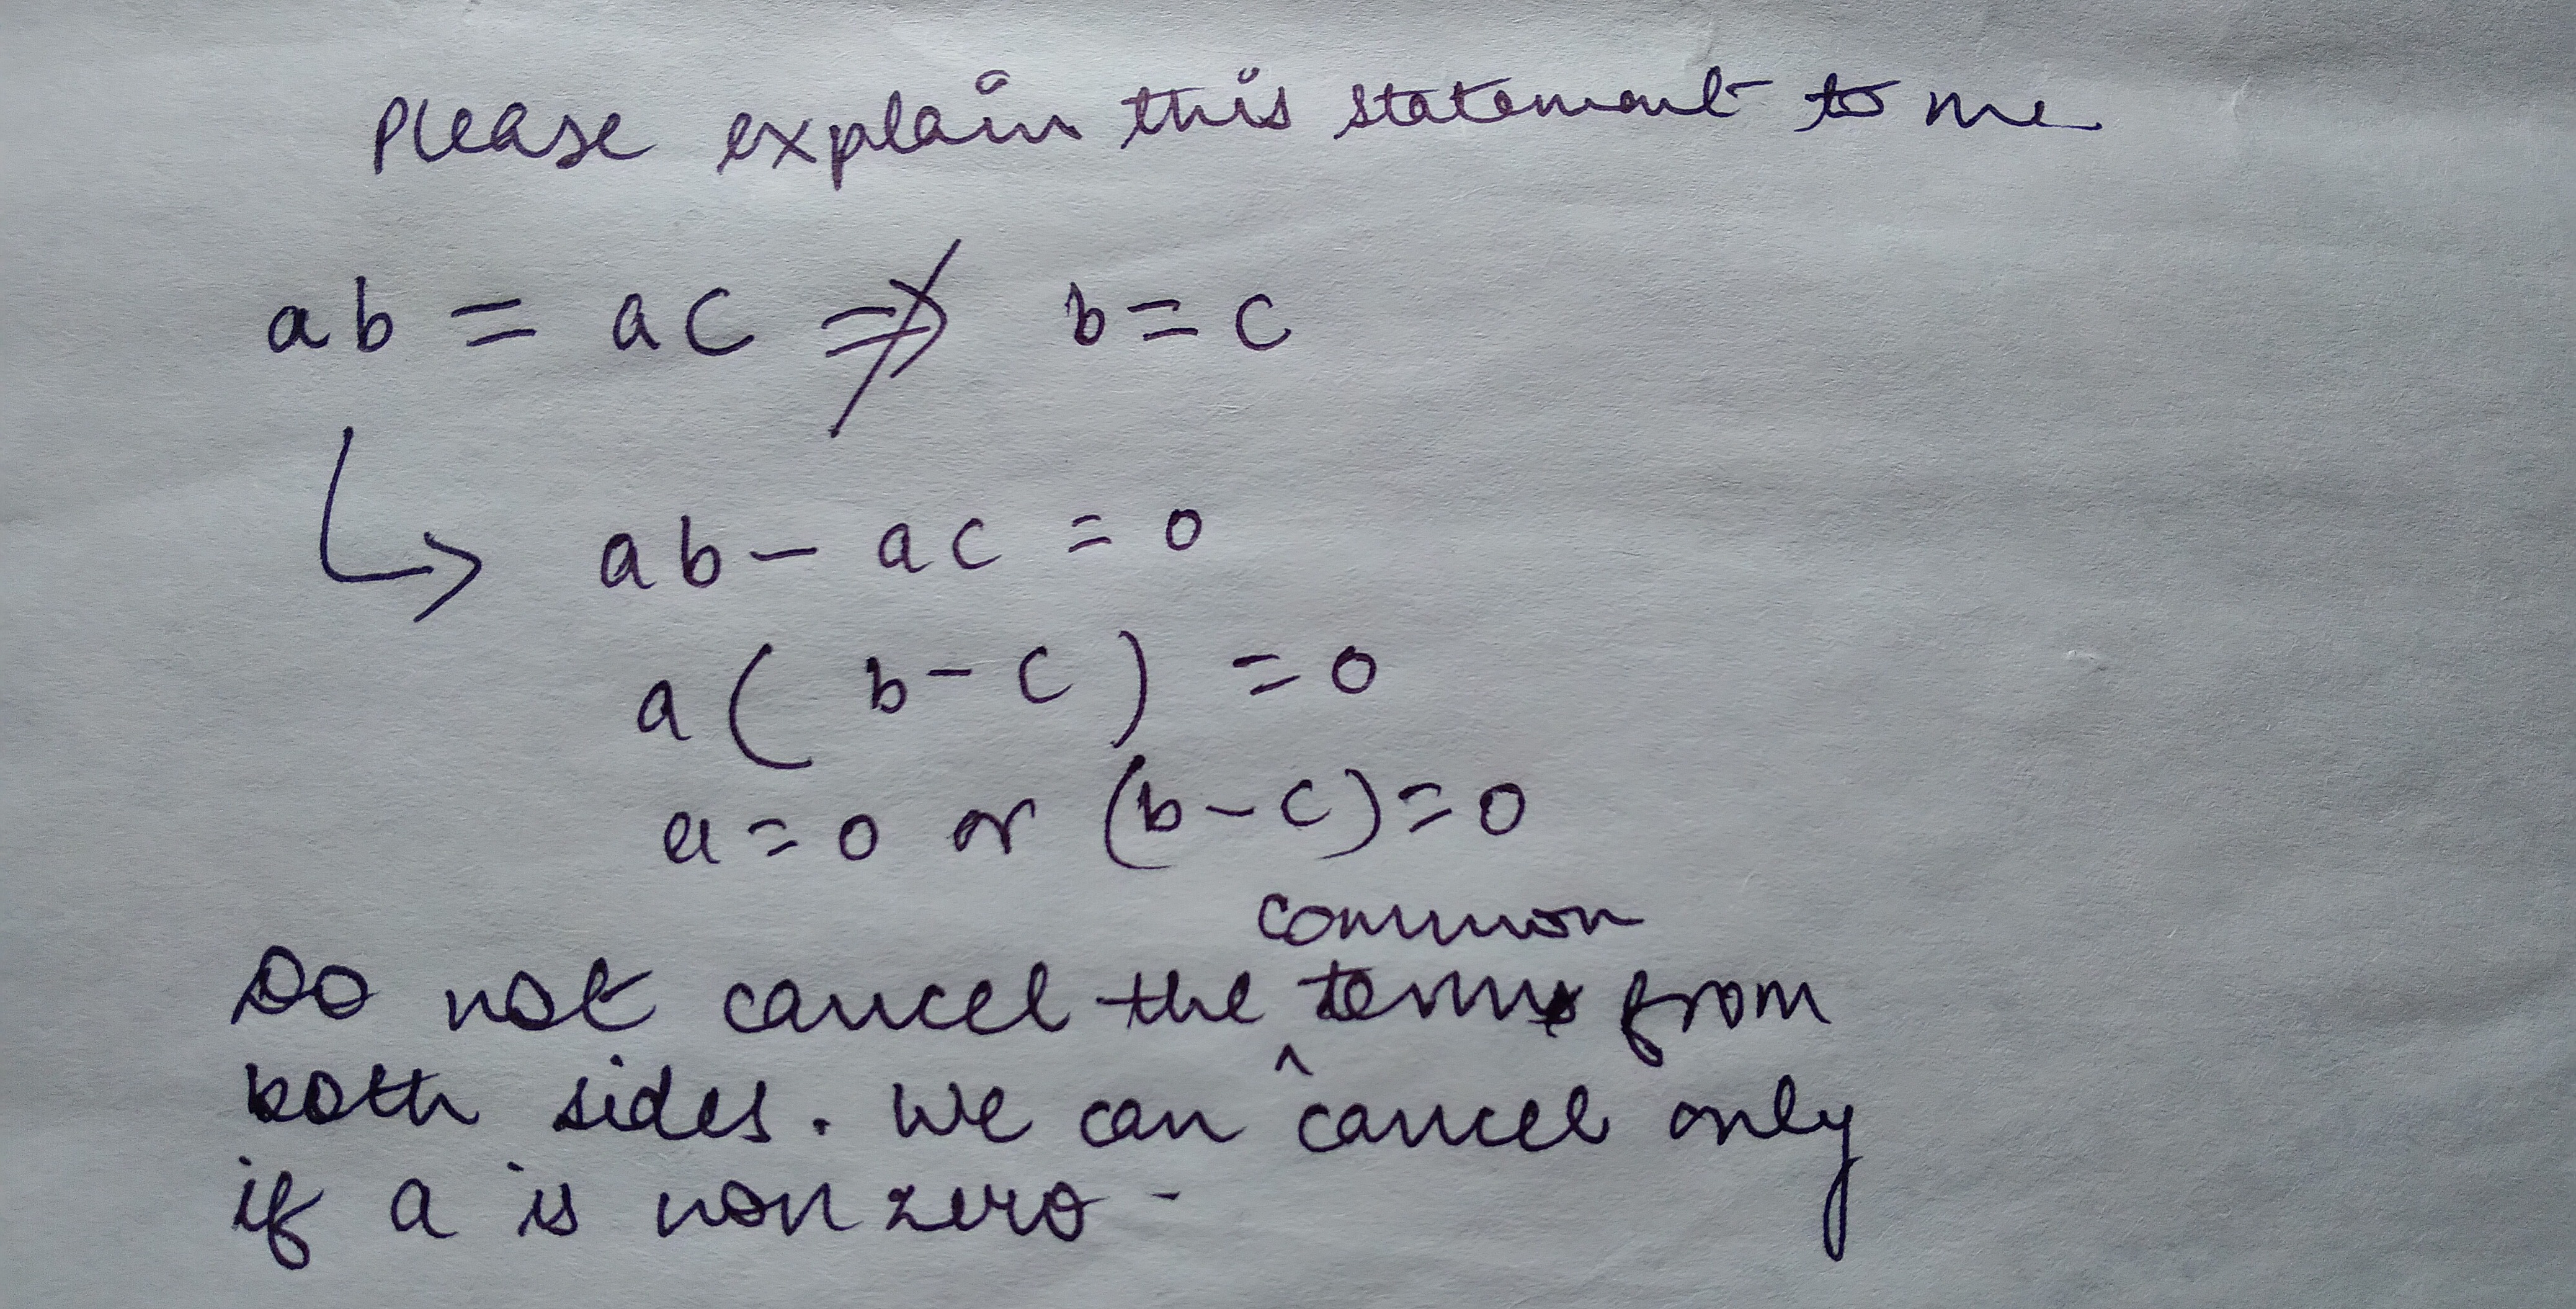 Please explain this statement to me
ab = ac ⇏ b = c
↳ ab - ac = 0
a ( b - c ) = 0
a = 0 or (b - c) = 0
common
Do not cancel the ‸ terms from
both sides. We can cancel only
if a is non zero -